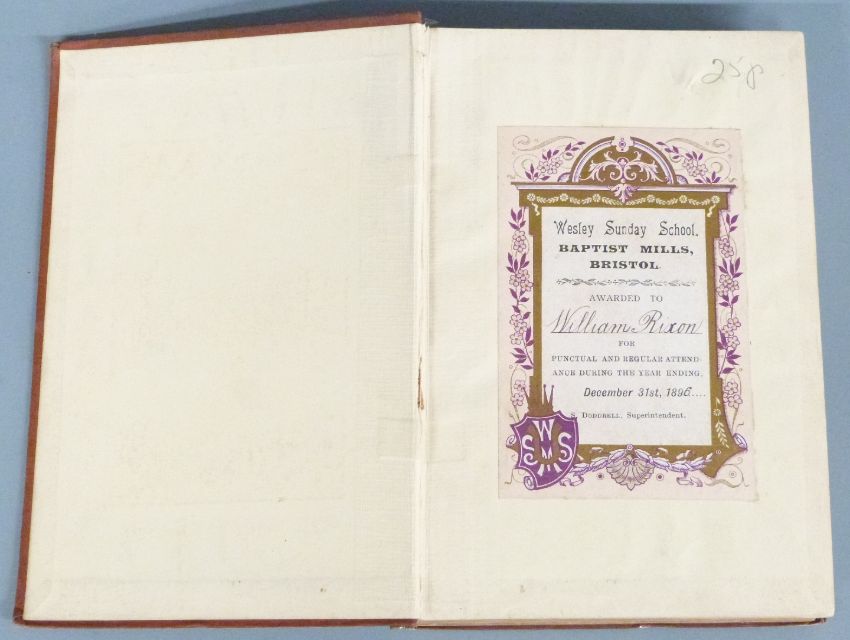 25p
Wesley Sunday School,
BAPTIST MILLS,
BRISTOL.
AWARDED TO
William Rixon
FOR
PUNCTUAL AND REGULAR ATTEND-
ANCE DURING THE YEAR ENDING,
December 31st, 1896....
S. DODDRELL, Superintendent.
W
S S